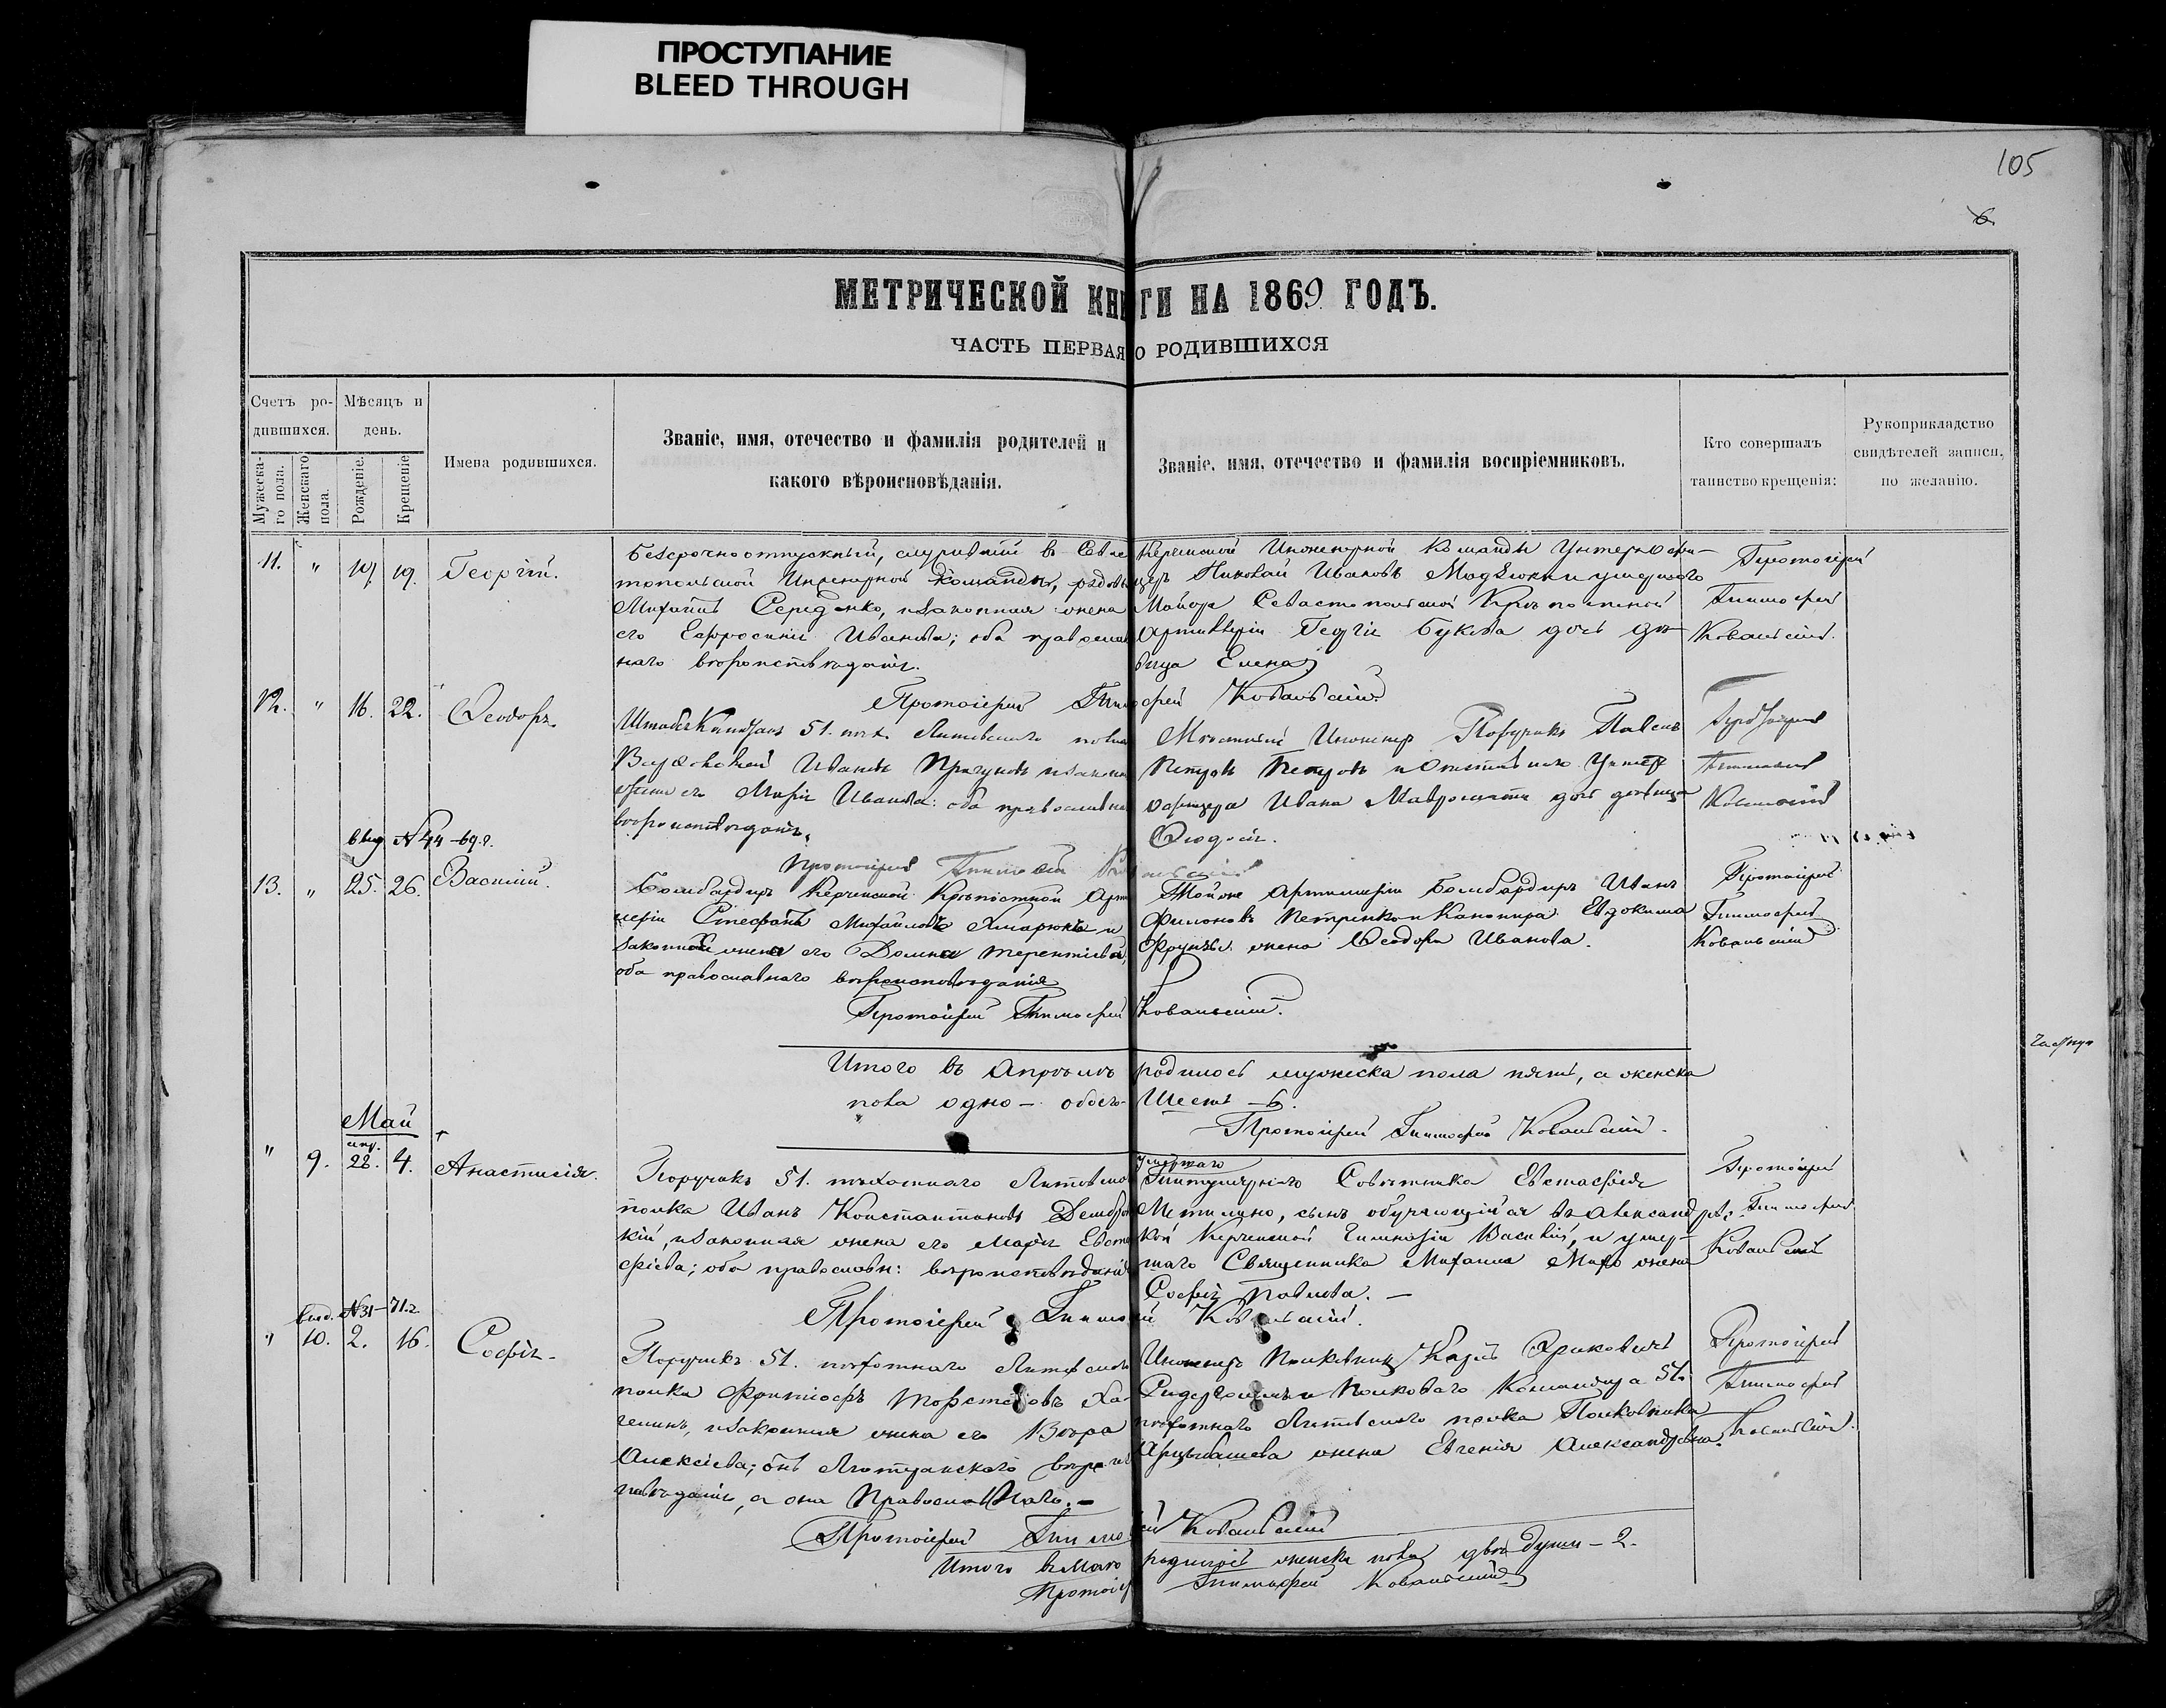 ПРОСТУПАНИЕ
BLEED THROUGH
105
6
МЕТРИЧЕСКОЙ КНИГИ НА 1869 ГОДЪ.
ЧАСТЬ ПЕРВАЯ О РОДИВШИХСЯ
Счетъ ро-
дившихся.
Мужеска-
го пола.
Женскаго
пола.
Мѣсяцъ и
день.
Рожденіе.
Крещеніе
Имена родившихся.
Званіе, имя, отечество и фамилія родителей и
какого вѣроисповѣданія.
Званіе, имя, отечество и фамилія воспріемниковъ.
Кто совершалъ
таинство крещенія:
Рукоприкладство
свидѣтелей записи,
по желанію.
11. " 19. Георгій.
Безсрочноотпускный, служившій въ Севас
топольской Инженерной Команды, рядовы
Михаилъ Середенко, и законная жена
его Ефросинія Иванова; оба православ
наго вѣроисповѣданія.
Керченской Инженерной Команды Унтеръ офи-
церъ Николай Ивановъ
Маіора Севастопольской Крѣпостной
Артиллеріи Георгія Букова дочь дѣ-
вица Елена
Протоіерей
Тимофей
Ковальскій.
Протоіерей Тимофей Ковальскій.
12. " 16. 22. Ѳеодоръ.
Штабсъ Капитанъ 51. пѣх. Литовскаго полка
Иванъ и законна
жена его Марія Иванова: оба православна
вѣроисповѣданія.
Мѣстный Инженеръ Поручикъ Павелъ
Петровъ Петровъ и Отставнаго Унтеръ
офицера Ивана дочь дѣвица
Протоіерей
Тимофей
Ковальскій
Протоіерей Тимофей Ковальскій
выд. № 44-69.г.
13. " 25. 26. Василій.
Бомбардиръ Керченской Крѣпостной Арти
леріи Стефанъ Михайловъ и
законная жена его Домна Терентіева,
оба православнаго вѣроисповѣданія
Тойже Артиллеріи Бомбардиръ Иванъ
Филоновъ Петренко и Канонира Евдокима
жена Ѳеодора Иванова.
Протоіерей
Тимофей
Ковальскій
Протоіерей Тимофей Ковальскій.
Итого въ Апрѣлѣ родилось мужеска пола пять, а женска
пола одно — обоего Шесть - 6.
Протоіерей Тимофей Ковальскій.
Май
апр.
" 9. 28. 4. Анастасія.
Поручикъ 51. пѣхотнаго Литовскаго
полка Иванъ Константиновъ
кій, и законная жена его Марія Евста
фіева; оба православн: вѣроисповѣданія
умершаго
Титулярнаго Совѣтника Евстафія
сынъ обучающійся въ Александров-
кой Керченской Гимназіи Василій, и умер-
шаго Священника Михаила жена
Софія Павлова. —
Протоіерей
Тимофей
Ковальскій
Протоіерей Тимофей Ковальскій.
выд. № 31-71.г.
" 10. 2. 16. Софія.
Поручикъ 51. пѣхотнаго Литовскаго
полка
и законная жена его Вѣра
Алексіева; онъ Лютеранскаго вѣроис
повѣданія, а она Православнаго. —
Инженеръ Полковникъ Карлъ
и Полковаго Командира 51.
пѣхотнаго Литовскаго полка Полковника
Арцыбашева жена Евгенія Александровна.
Протоіерей
Тимофей
Ковальскій.
Протоіерей Тимофей Ковальскій
Итого въ Маѣ родилось женска пола двѣ души - 2.
Протоіерей Тимофей Ковальскій